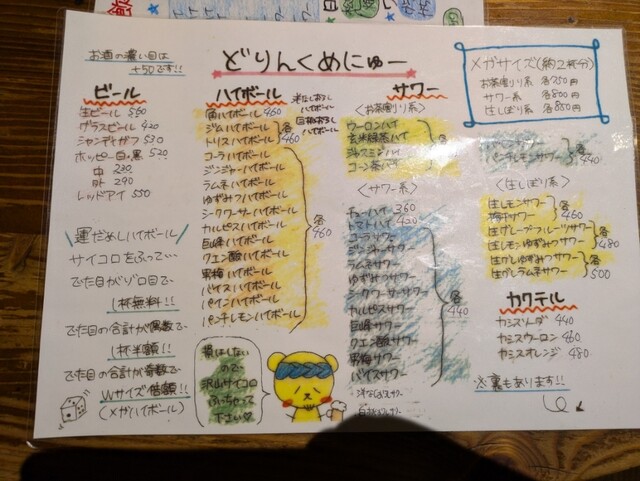 どりんくめにゅー
お酒の濃い目は
+50です!!
ビール
生ビール 550
グラスビール 420
シャンディガフ 530
ホッピー白・黒 520
中 230
外 290
レッドアイ 550
運だめしハイボール
サイコロをふって…
でた目がゾロ目で
1杯無料!!
でた目の合計が偶数で
1杯半額!!
でた目の合計が奇数で
Wサイズ倍額!!
(メガハイボール)
ハイボール
角ハイボール 460
ジムハイボール
トリスハイボール
各460
コーラハイボール
ジンジャーハイボール
ラムネハイボール
ゆずみつハイボール
シークワーサーハイボール
カルピスハイボール
巨峰ハイボール
クエン酸ハイボール
男梅ハイボール
バイスハイボール
パインハイボール
パンチレモンハイボール
各460
損はしない
ので
沢山サイコロ
ふっちゃって
下さい
サワー
〈お茶割り系〉
ウーロンハイ
玄米緑茶ハイ
ジャスミンハイ
コーン茶ハイ
〈サワー系〉
チューハイ 360
トマトハイ 420
コーラサワー
ジンジャーサワー
ラムネサワー
ゆずみつサワー
シークワーサーサワー
カルピスサワー
巨峰サワー
クエン酸サワー
男梅サワー
バイスサワー
各440
メガサイズ(約2杯分)
お茶割り系 各750円
サワー系 各800円
生しぼり系 各850円
パンチレモンサワー
各440
〈生しぼり系〉
生レモンサワー
梅干サワー
各460
生グレープフルーツサワー
生レモンゆずみつサワー
各480
生グレゆずみつサワー
生グレラムネサワー
各500
カクテル
カシスソーダ 440
カシスウーロン 460
カシスオレンジ 480
※裏もあります!!